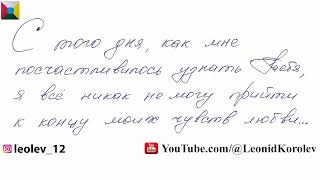 С того дня, как мне
посчастливилось узнать Тебя,
я всё никак не могу прийти
к концу моих чувств любви...
leolev_12
YouTube.com/@LeonidKorolev